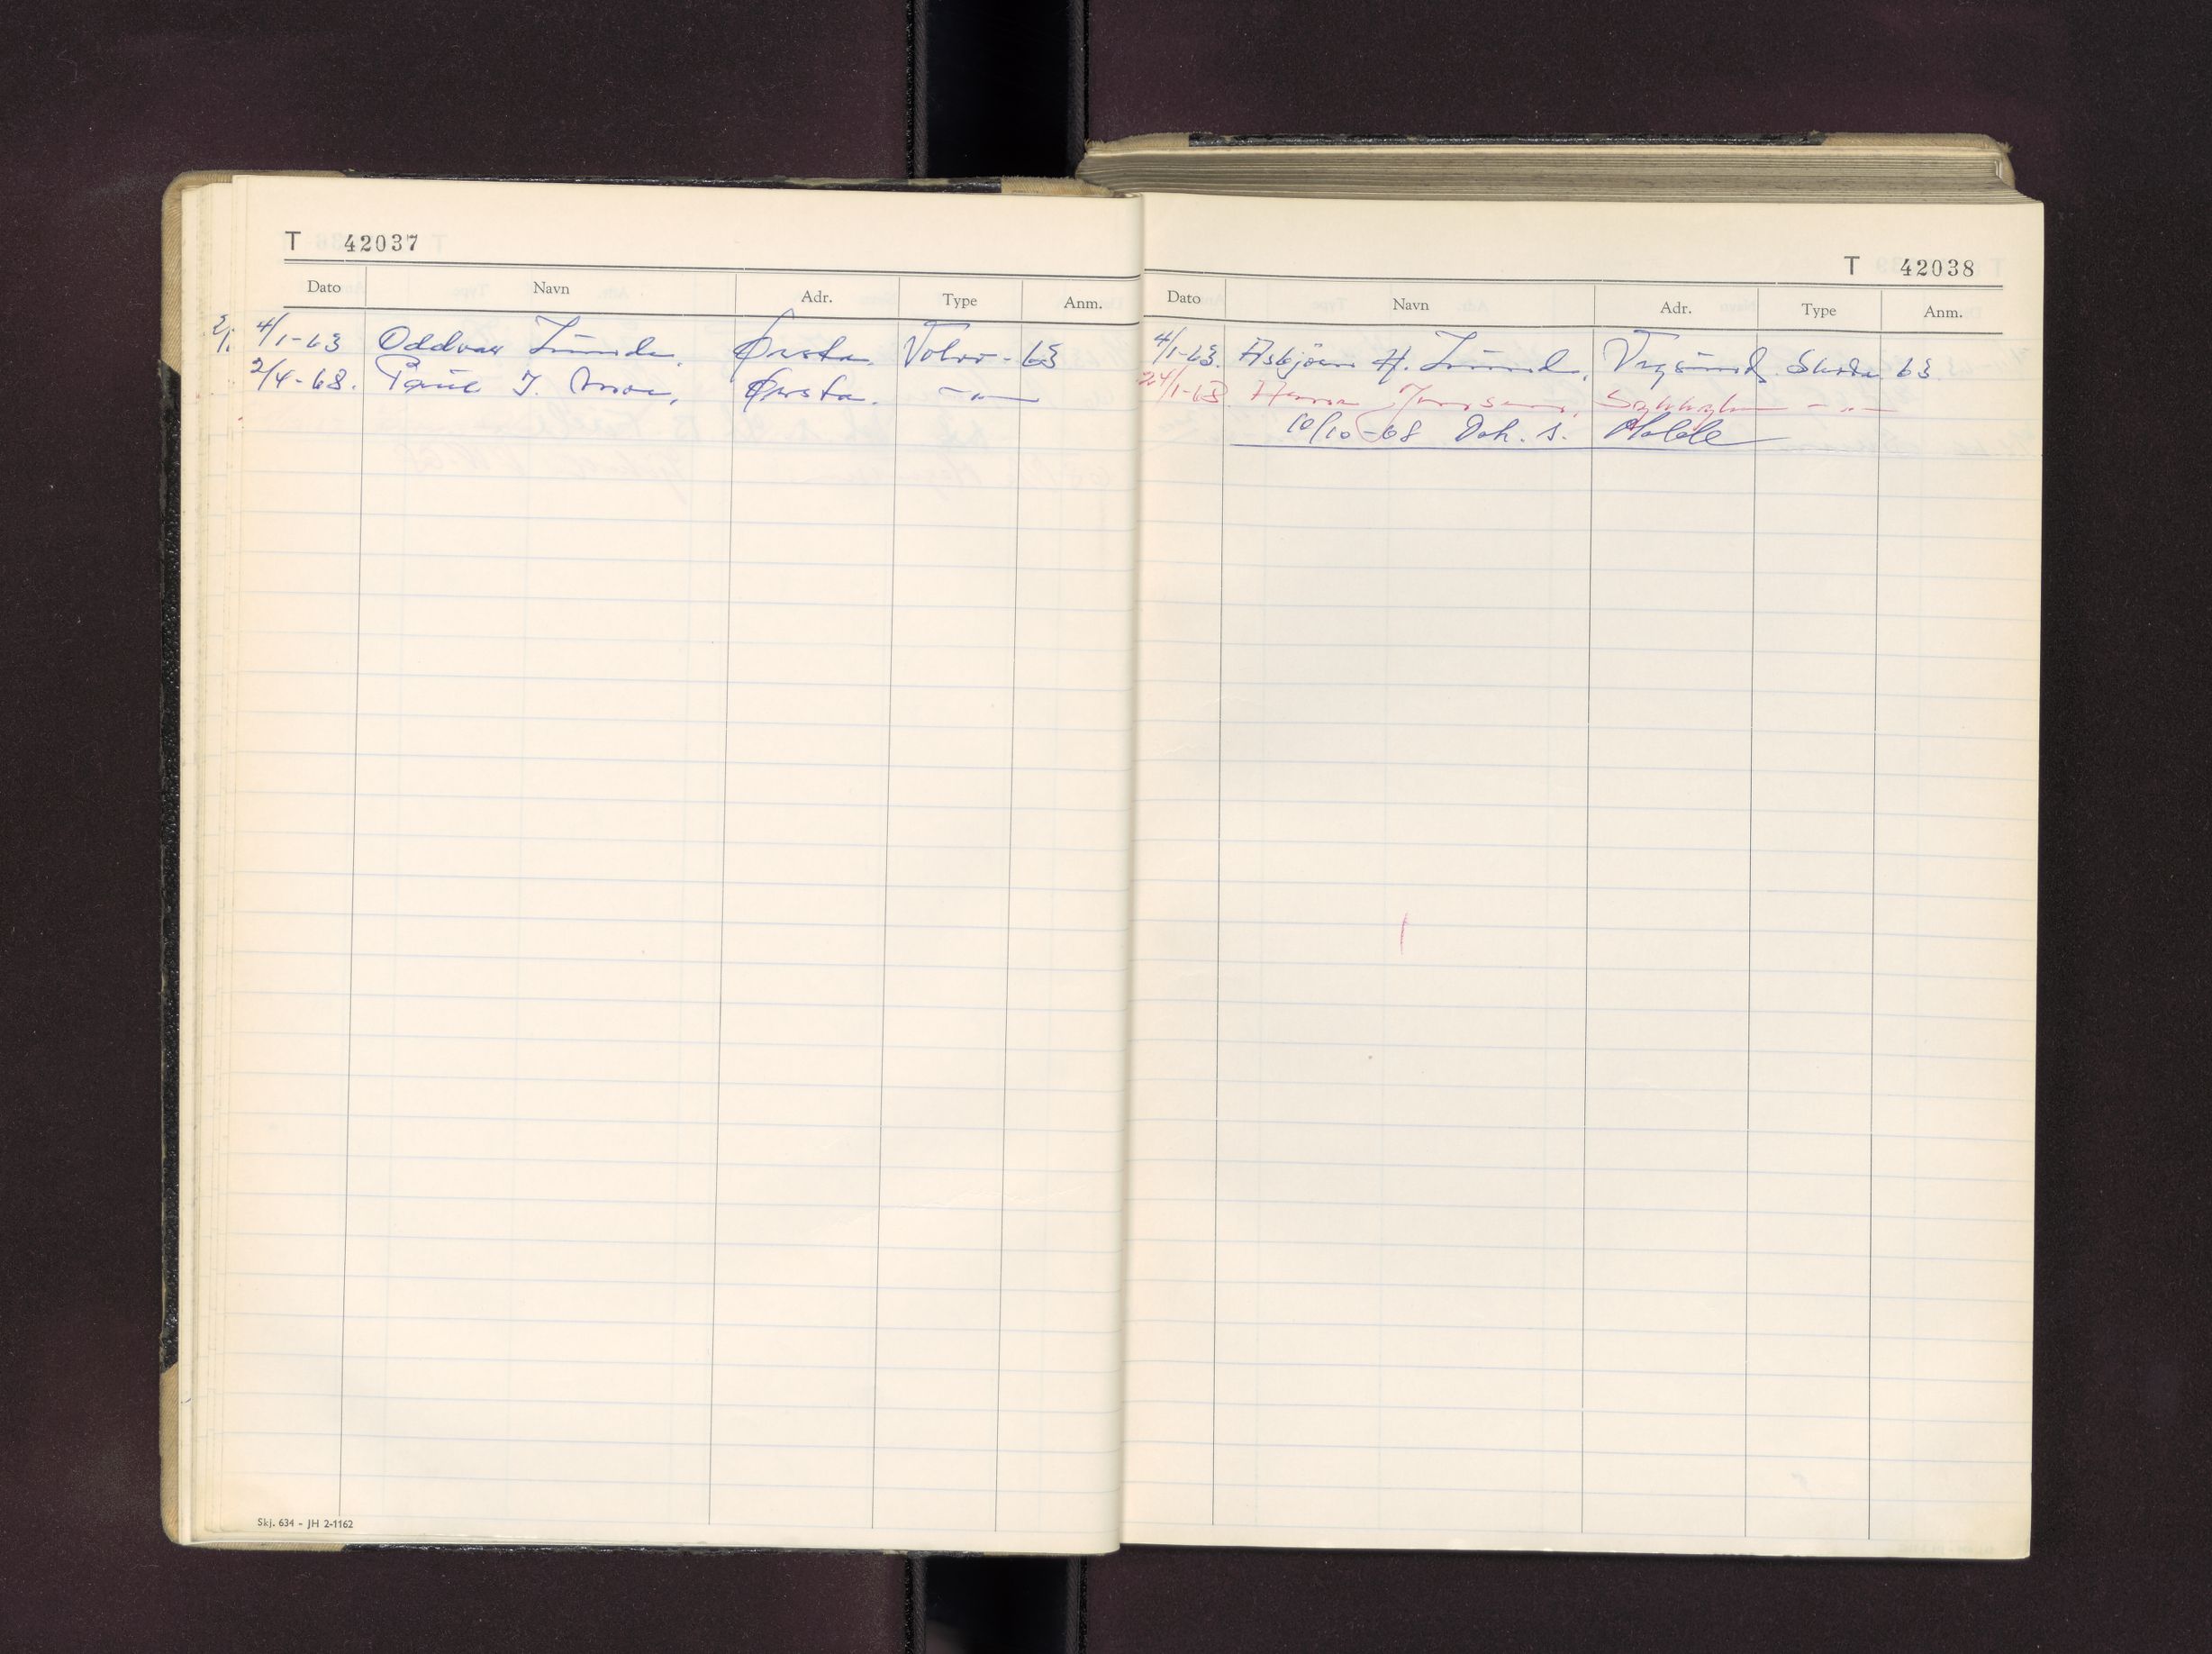 T 42037
Dato Navn Adr. Type Anm.
4/1-63 Oddvar Lunde. Ørsta. Volvo - 63
2/4-68. Paul J. Moe, Ørsta. -"-
Skj. 634 - JH 2-1162
T 42038
Dato Navn Adr. Type Anm.
4/1-63. Asbjørn H. Lund, Vegsund. Skoda 63.
24/1-68 -"-
10/10-68 Dok. s. Molde